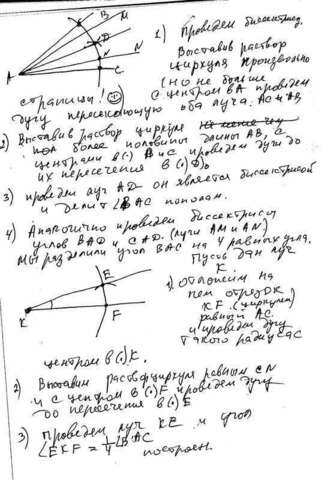 B M
D
N
A
C
1) Проведем биссектрису.
Выставив раствор
циркуля произвольно
(но не больше
страницы! с центром в А проведем
дугу пересекающую оба луча. AC и AB
2) Выставив раствор циркуля
более половины длины AB, с
центрами в (·) B и C проведем дуги до
их пересечения в (·) D.
3) проведем луч AD он является биссектрисой
и делит ∠BAC пополам.
4) Аналогично проведем биссектрисы
углов BAD и CAD. (лучи AM и AN)
Мы разделили угол BAC на 4 равных угла.
Пусть дан луч
K.
E
K
F
1) отложим на
нем отрезок
KF (циркулем)
равный AC.
и проведем дугу
такого радиуса с
центром в (·) K.
2) Выставим раствор циркуля равным CN
и с центром в (·) F проведем дугу
до пересечения в (·) E
3) Проведем луч KE и угол
∠EKF = 1/4 ∠BAC
построен.